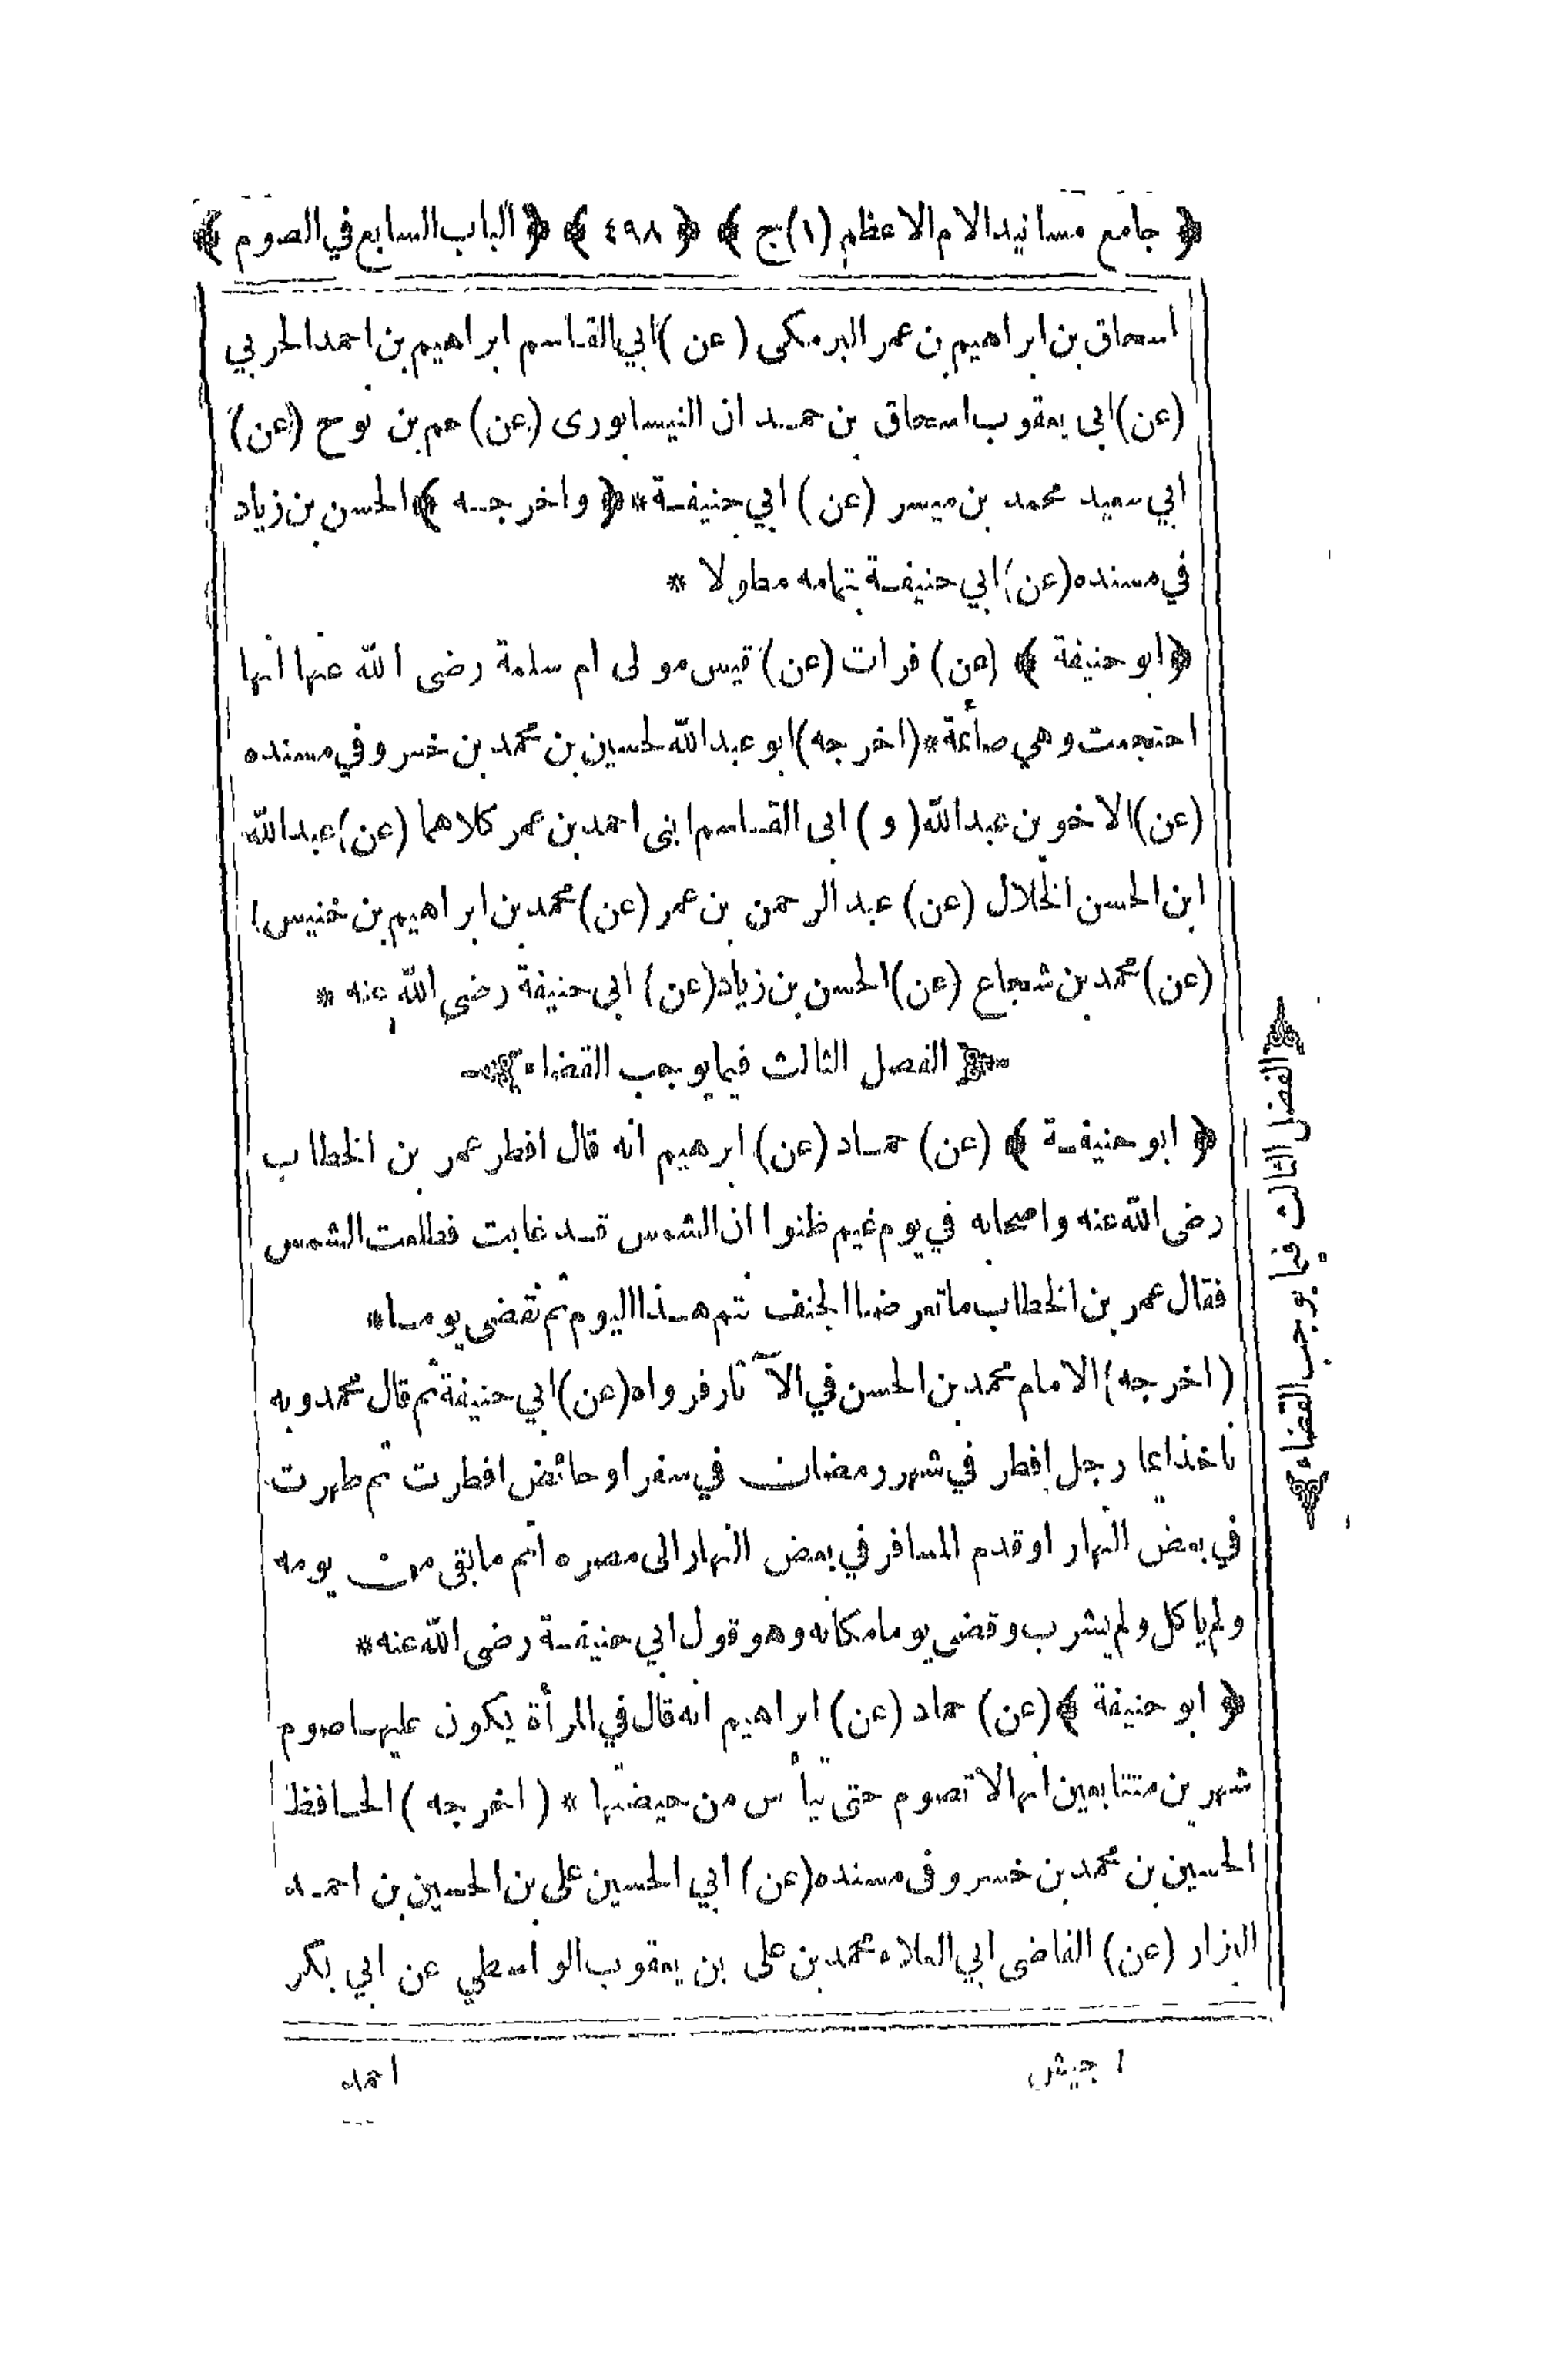 ﴿ جامع مسانيد الامام الاعظم (١) ج ﴾ ﴿ ٤٩٨ ﴾ ﴿ الباب السابع في الصوم ﴾
اسحاق بن ابراهيم بن عمر البرمكى (عن) ابي القاسم ابراهيم بن احمد الحربي
(عن) ابى يعقوب اسحاق بن حمدان النيسابورى (عن) حم بن نوح (عن)
ابي سعيد محمد بن ميسر (عن) ابي حنيفة * ﴿ واخرجه ﴾ الحسن بن زياد
في مسنده (عن) ابي حنيفة بتمامه مطولا *
﴿ ابو حنيفة ﴾ (عن) فرات (عن) قيس مولى ام سلمة رضى الله عنها انها
احتجمت وهي صائمة * (اخرجه) ابو عبدالله لحسين بن محمد بن خسرو في مسنده
(عن) الاخوين عبدالله (و) ابى القاسم ابنى احمد بن عمر كلاهما (عن) عبدالله
ابن الحسن الخلال (عن) عبد الرحمن بن عمر (عن) محمد بن ابراهيم بن خنيس ١
(عن) محمد بن شجاع (عن) الحسن بن زياد (عن) ابى حنيفة رضى الله عنه *
الفصل الثالث فيما يوجب القضاء
﴿ ابو حنيفة ﴾ (عن) حماد (عن) ابرهيم انه قال افطر عمر بن الخطاب
رضى الله عنه واصحابه في يوم غيم ظنوا ان الشمس قد غابت فطلعت الشمس
فقال عمر بن الخطاب ما تعرضنا الجنف نتم هذا اليوم ثم نقضى يوما *
(اخرجه) الامام محمد بن الحسن في الآثار فرواه (عن) ابي حنيفة ثم قال محمد وبه
ناخذ ايما رجل افطر في شهر رمضان في سفر او حائض افطرت ثم طهرت
في بعض النهار او قدم المسافر في بعض النهار الى مصره اتم ما بقى من يومه
ولم ياكل ولم يشرب وقضى يوما مكانه وهو قول ابي حنيفة رضى الله عنه *
﴿ ابو حنيفة ﴾ (عن) حماد (عن) ابراهيم انه قال في المرأة يكون عليها صوم
شهرين متتابعين انها لا تصوم حتى تيأس من حيضتها * (اخرجه) الحافظ
الحسين بن محمد بن خسرو فى مسنده (عن) ابي الحسين على بن الحسين بن احمد
البزار (عن) القاضى ابي العلاء محمد بن على بن يعقوب الواسطي عن ابي بكر
١ جيش
احمد
الفصل الثالث فيما يوجب القضاء